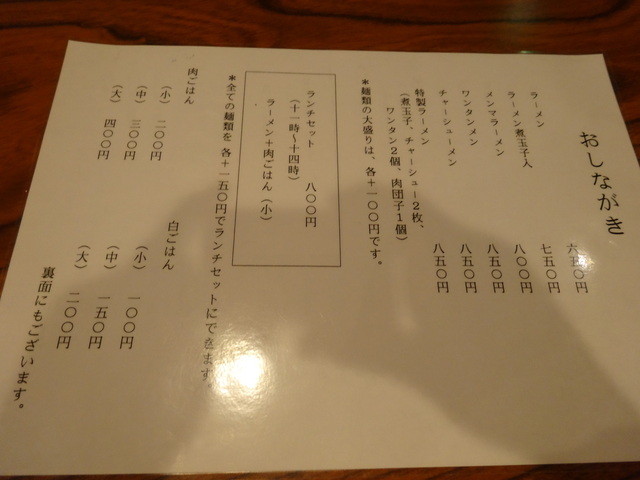 おしながき
ラーメン 六五〇円
ラーメン煮玉子入 七五〇円
メンマラーメン 八〇〇円
ワンタンメン 八五〇円
チャーシューメン 八五〇円
特製ラーメン 八五〇円
(煮玉子、チャーシュー2枚、
ワンタン2個、肉団子1個)
*麺類の大盛りは、各+一〇〇円です。
ランチセット 八〇〇円
(十一時~十四時)
ラーメン+肉ごはん(小)
*全ての麺類を 各+一五〇円でランチセットにできます。
肉ごはん
(小) 二〇〇円
(中) 三〇〇円
(大) 四〇〇円
白ごはん
(小) 一〇〇円
(中) 一五〇円
(大) 二〇〇円
裏面にもございます。